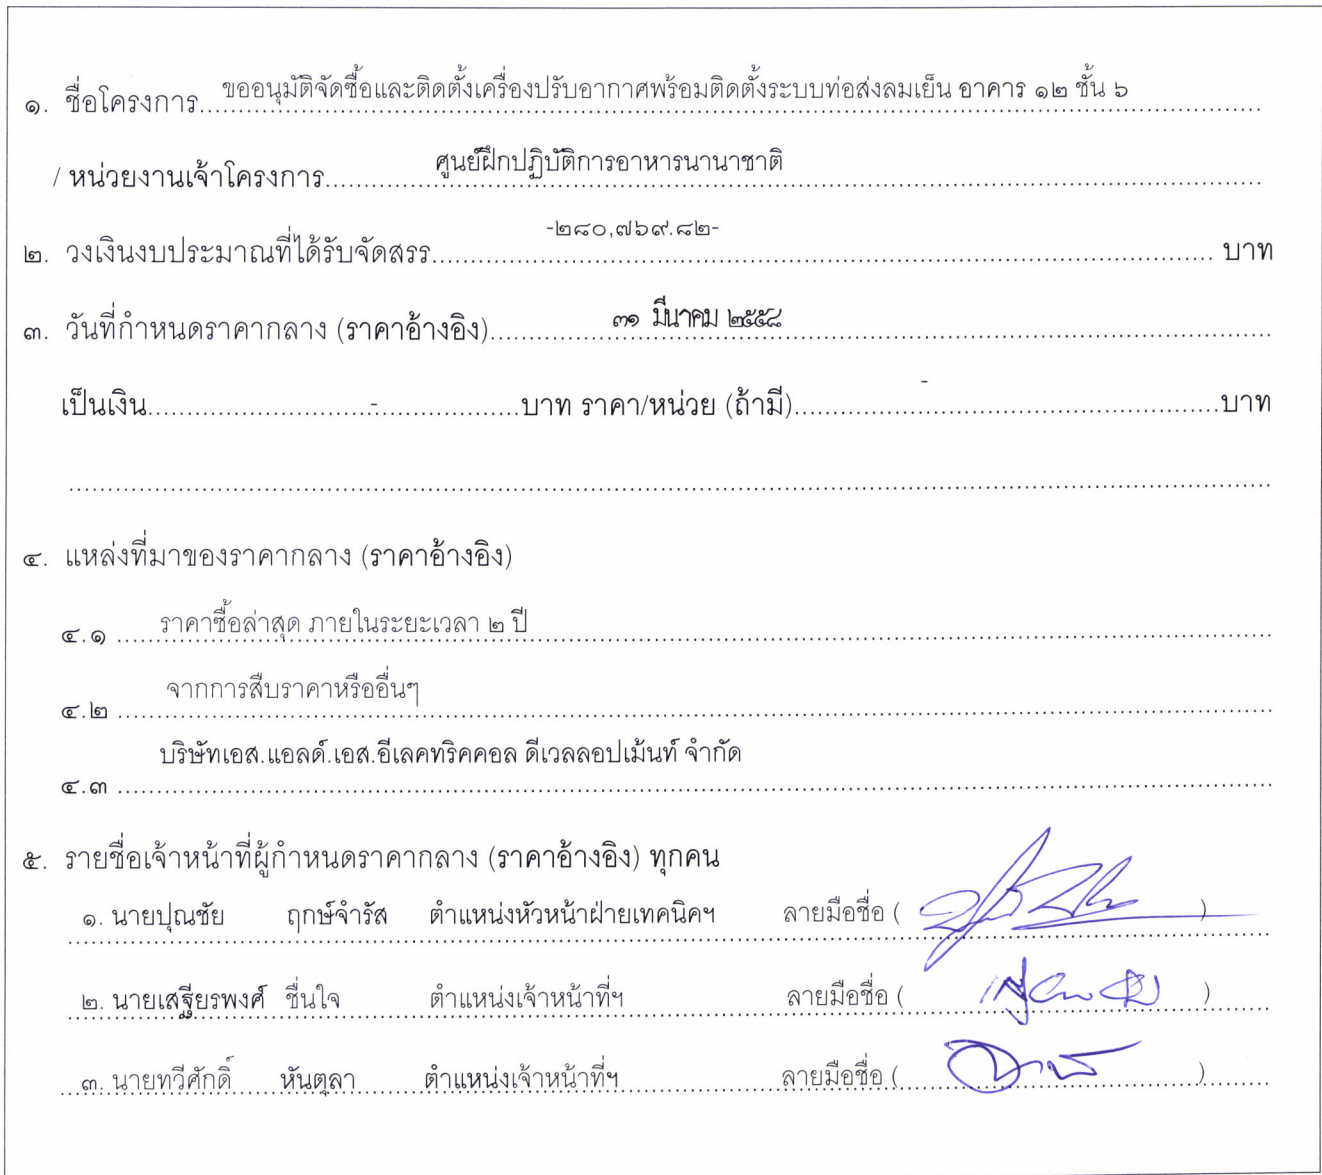 ๑. ชื่อโครงการ...ขออนุมัติจัดซื้อและติดตั้งเครื่องปรับอากาศพร้อมติดตั้งระบบท่อส่งลมเย็น อาคาร ๑๒ ชั้น ๖
/ หน่วยงานเจ้าโครงการ...ศูนย์ฝึกปฏิบัติการอาหารนานาชาติ
๒. วงเงินงบประมาณที่ได้รับจัดสรร...-๒๘๐,๗๖๙.๘๒-... บาท
๓. วันที่กำหนดราคากลาง (ราคาอ้างอิง)...๓๑ มีนาคม ๒๕๕๘
เป็นเงิน...-...บาท ราคา/หน่วย (ถ้ามี)...-...บาท
๔. แหล่งที่มาของราคากลาง (ราคาอ้างอิง)
๔.๑ ราคาซื้อล่าสุด ภายในระยะเวลา ๒ ปี
๔.๒ จากการสืบราคาหรืออื่นๆ
๔.๓ บริษัทเอส.แอลด์.เอส.อีเลคทริคคอล ดีเวลลอปเม้นท์ จำกัด
๕. รายชื่อเจ้าหน้าที่ผู้กำหนดราคากลาง (ราคาอ้างอิง) ทุกคน
๑. นายปุณชัย ฤกษ์จำรัส ตำแหน่งหัวหน้าฝ่ายเทคนิคฯ ลายมือชื่อ ( )
๒. นายเสฐียรพงศ์ ชื่นใจ ตำแหน่งเจ้าหน้าที่ฯ ลายมือชื่อ ( )
๓. นายทวีศักดิ์ หันตุลา ตำแหน่งเจ้าหน้าที่ฯ ลายมือชื่อ ( )